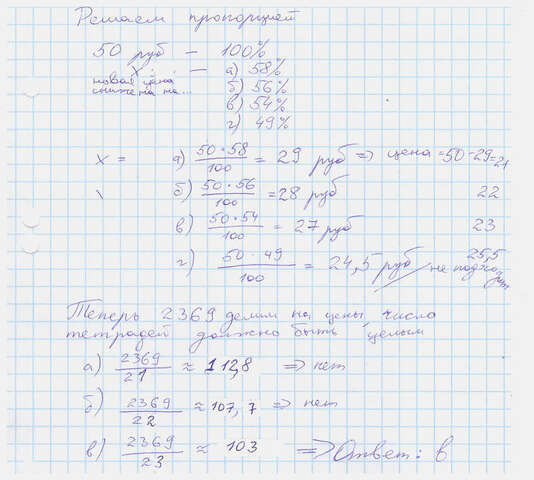 Решаем пропорцией
50 руб — 100%
x — а) 58%
новая цена
снижена на... б) 56%
в) 54%
г) 49%
x = а) 50·58/100 = 29 руб => цена =50-29=21
б) 50·56/100 = 28 руб 22
в) 50·54/100 = 27 руб 23
г) 50·49/100 = 24,5 руб 25,5 не подходит
Теперь 2369 делим на цены, число
тетрадей должно быть целым
а) 2369/21 ≈ 112,8 => нет
б) 2369/22 ≈ 107,7 => нет
в) 2369/23 ≈ 103 => Ответ: в